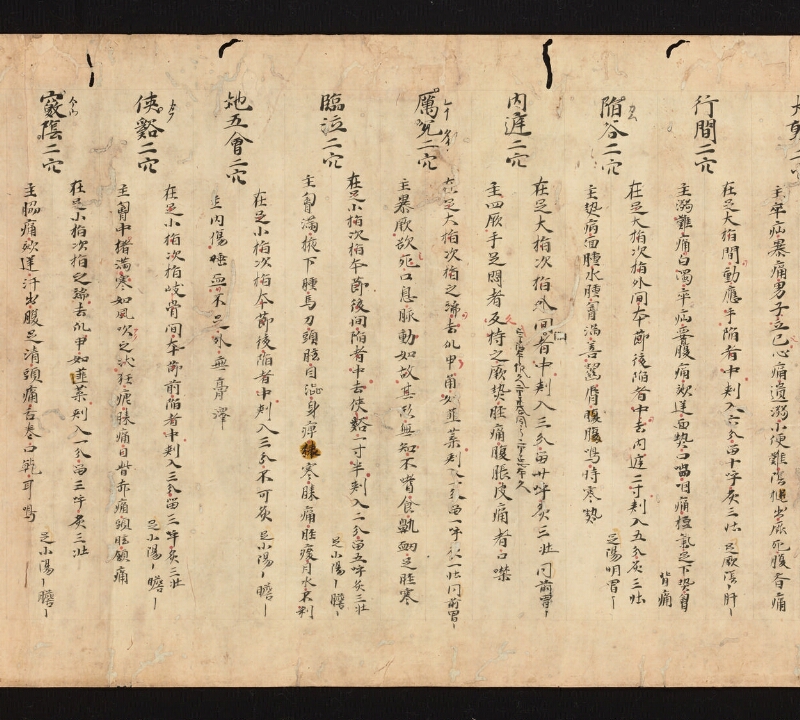 主卒疝暴痛男子立已心痛遺溺小便難陰縮出尿死腹脊痛
行間二穴
在足大指間動應手陷者中刾入六分留十呼灸三壮 足厥陰肝
主溺難痛白濁卒疝腹痛欬逆面熱口喎咽痛足下熱胷背痛
陷谷二穴
在足大指次指外间本節後陷者中去内庭二寸刾入五分灸三壮
主熱病面腫水腫胷滿喜腹鳴時寒熱 足陽明胃
内庭二穴
在足大指次指外间者中刾入三分留廿呼灸三壮 同前胃
主四厥手足悶者久持之厥熱脛痛腹脹皮痛者口噤
厲兌二穴
在足大指次指之端去爪甲角如韮葉刾入一分留一呼灸一壮 同前胃
主暴厥欲死口息脈動如故其形無知不嗜食鼽衂足脛寒
臨泣二穴
在足小指次指本節後间陷者中去侠谿一寸半刾入二分留五呼灸三壮
主胷滿掖下腫馬刀頭眩自身痺寒膝痛脛痠 足小陽膽
地五會二穴
在足小指次指本節後陷者中刾入三分不可灸 足小陽膽
主内傷唾血不足外無膏澤
侠谿二穴
在足小指次指岐骨间本節前陷者中刾入三分留三呼灸三壮
主胷中榰滿寒如風吹之状狂瘧膝痛目眥赤痛頰頷痛 足小陽膽
竅陰二穴
在足小指次指之端去爪甲如韮葉刾入一分留三呼灸三壮
主脇痛欬逆汗出腹足清頭痛舌卷口乾耳鳴 足小陽膽